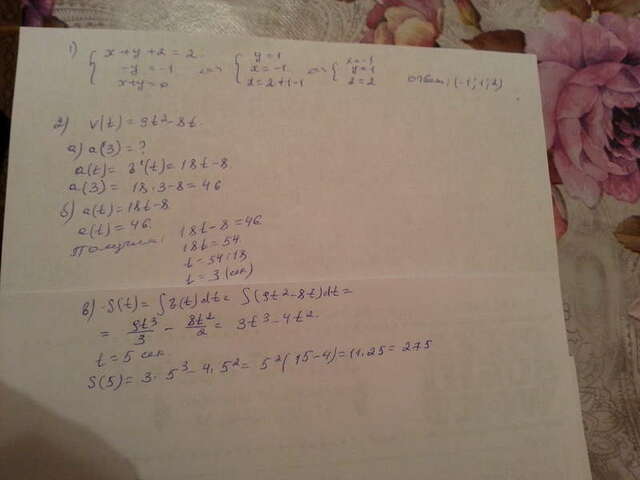 1) { x+y+z=2 <=> { y=1 <=> { x=-1
-y=-1 x=-1 y=1 Ответ: (-1;1;2)
x+y=0 z=2+1-1 z=2
2) v(t)=9t²-8t
а) a(3)=?
a(t)= v'(t)=18t-8
a(3)= 18·3-8=46
б) a(t)=18t-8
a(t)=46.
Получим: 18t-8=46
18t=54
t=54:18
t=3 (сек)
в) S(t)= ∫v(t)dt= ∫(9t²-8t)dt=
= 9t³/3 - 8t²/2 = 3t³-4t².
t=5 сек
S(5)= 3·5³-4·5²= 5²(15-4)=11·25=275